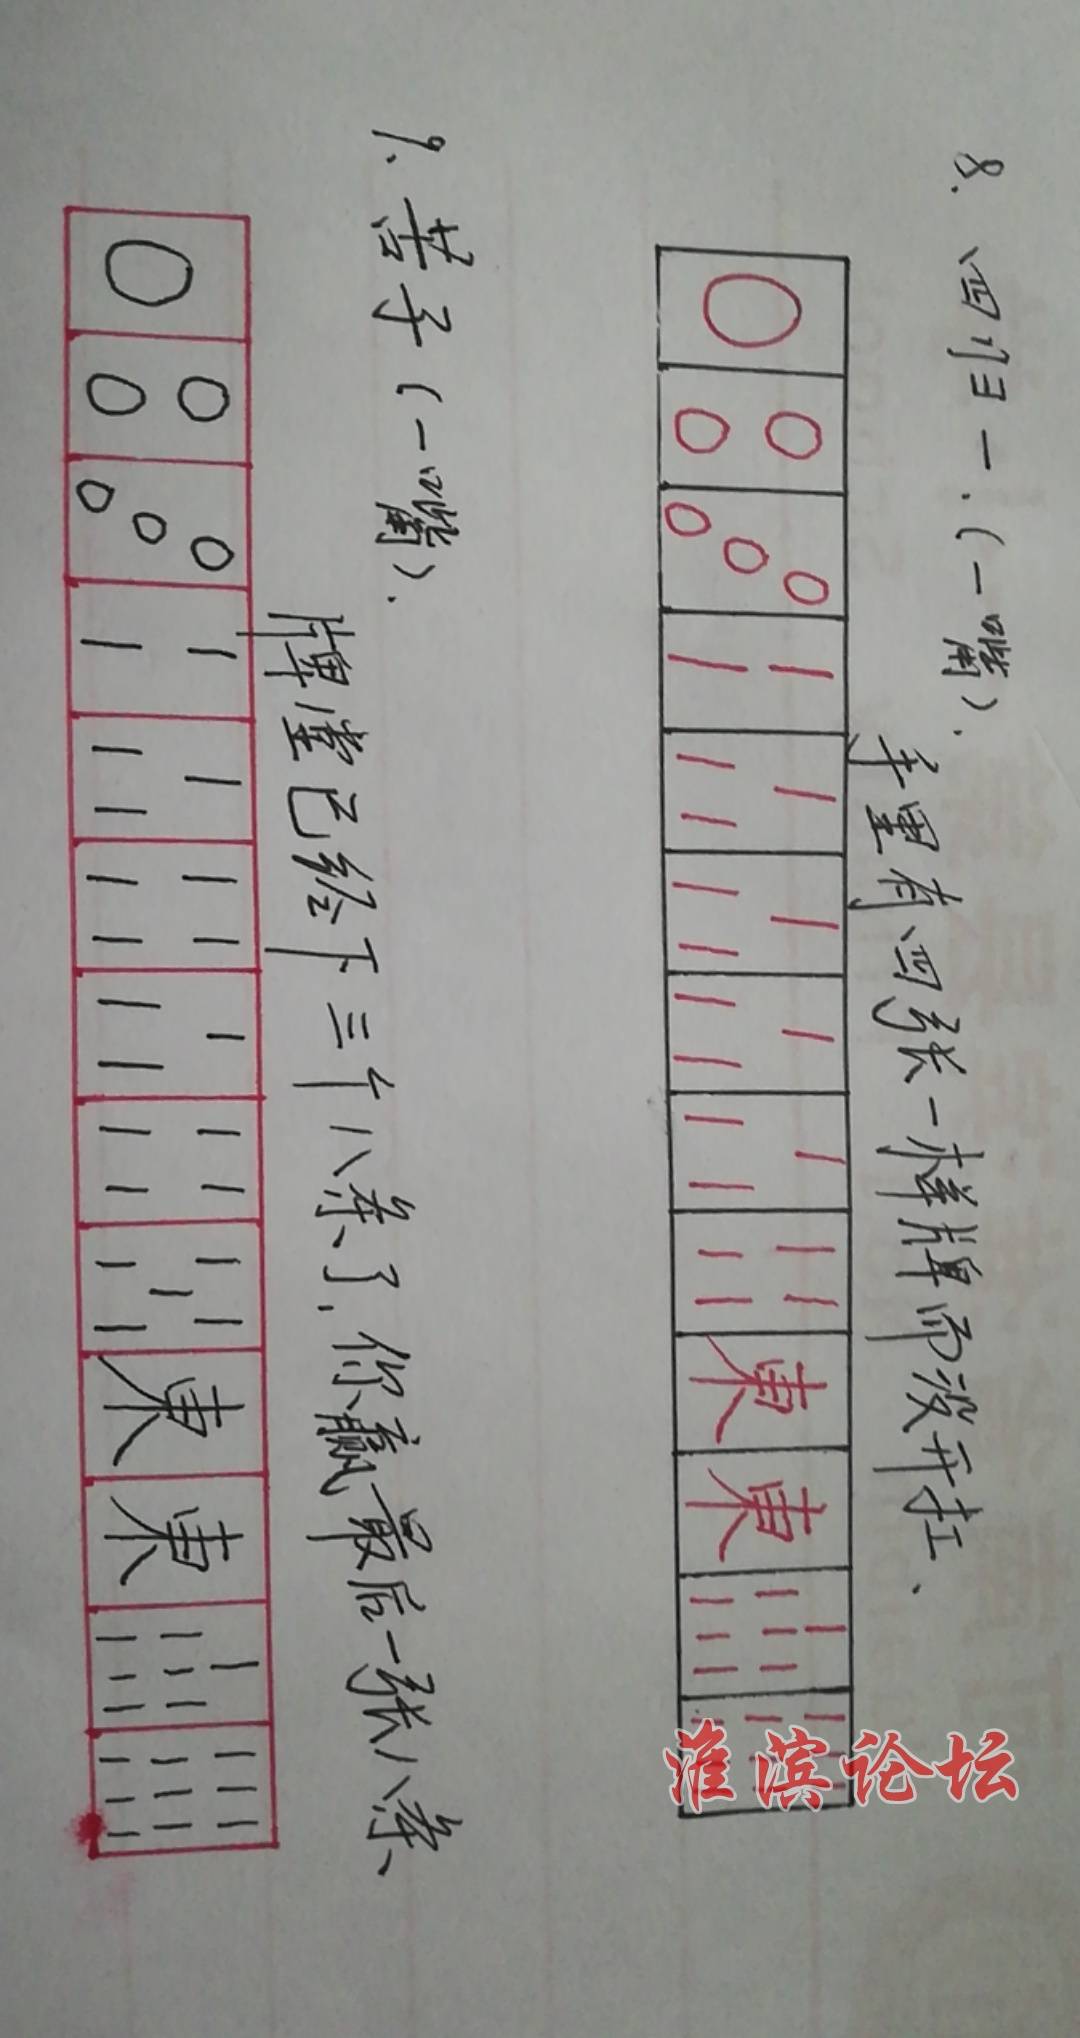 8、四归一.(一嘴).
手里有四张一样牌而没开扛、
東 東
9、苦子(一嘴).
牌堂已经下三个八条了,你赢最后一张八条、
東 東
淮滨论坛